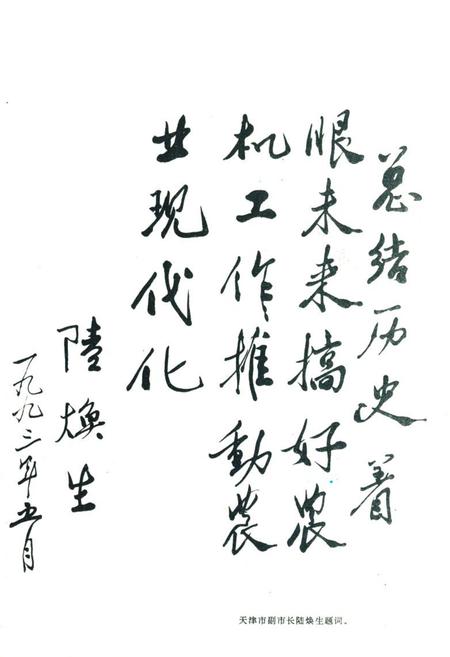 总结历史着
眼未来搞好农
机工作推動農
业现代化
陸焕生
一九九三年五月
天津市副市长陆焕生题词。